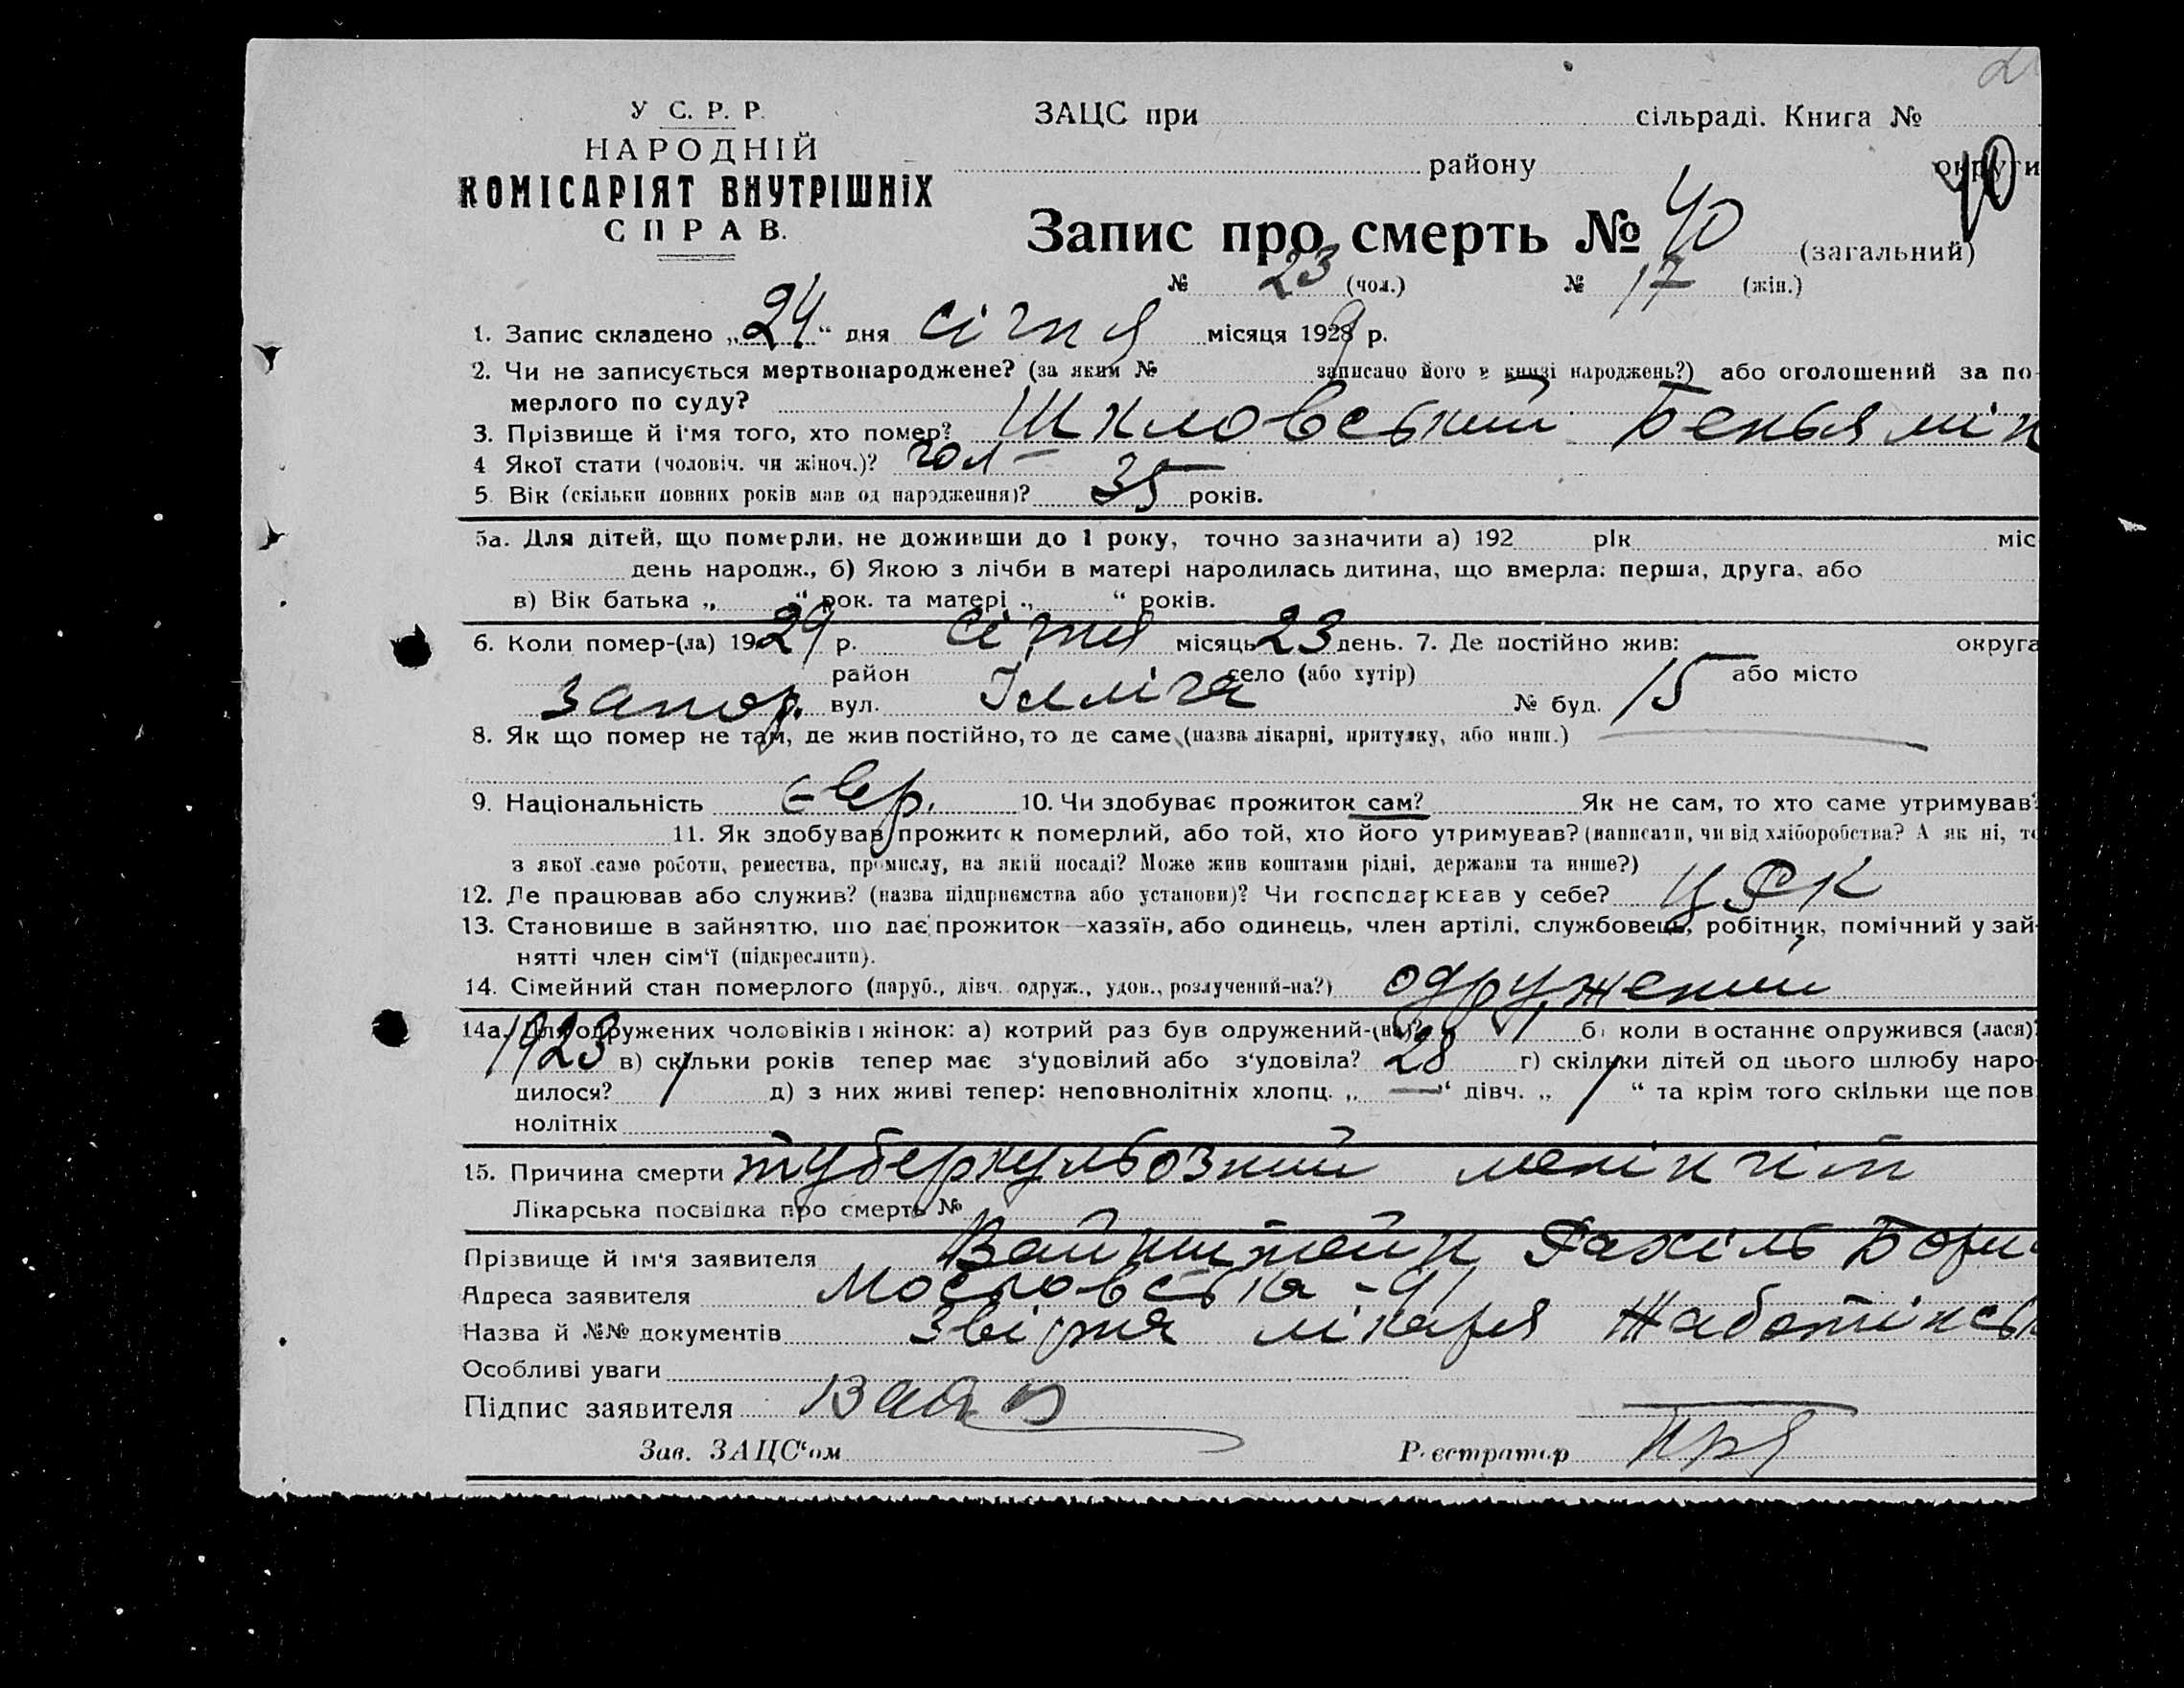 У С. Р. Р.
НАРОДНІЙ
КОМІСАРІЯТ ВНУТРІШНІХ
СПРАВ.
ЗАЦС при сільраді. Книга №
району округи
40
Запис про смерть № 40 (загальний)
№ 23 (чол.) № 17 (жін.)
1. Запис складено „24“ дня січня місяця 1929 р.
2. Чи не записується мертвонароджене? (за яким № записано його в книзі народжень?) або оголошений за по-
мерлого по суду?
3. Прізвище й і'мя того, хто помер? Шкловський Беньямін
4 Якої стати (чоловіч. чи жіноч.)? чол
5. Вік (скільки повних років мав од народження)? 35 років.
5а. Для дітей, що померли, не доживши до 1 року, точно зазначити а) 192 рік міс
день народж., б) Якою з лічби в матері народилась дитина, що вмерла: перша, друга, або
в) Вік батька „ “ рок. та матері „ “ років.
6. Коли помер-(ла) 1929 р. січня місяць 23 день. 7. Де постійно жив: округа
район село (або хутір) або місто
Запор. вул. Ілліча № буд. 15
8. Як що помер не там, де жив постійно, то де саме (назва лікарні, притулку, або инш.)
9. Національність євр. 10. Чи здобуває прожиток сам? Як не сам, то хто саме утримував?
11. Як здобував прожиток померлий, або той, хто його утримував? (написати, чи від хліборобства? А як ні, то
з якої саме роботи, ремества, промислу, на якій посаді? Може жив коштами рідні, держави та инше?)
12. Де працював або служив? (назва підприємства або установи)? Чи господарював у себе? ЦРК
13. Становище в зайняттю, що дає прожиток—хазяїн, або одинець, член артілі, службовець, робітник, помічний у зай-
нятті член сім'ї (підкреслити).
14. Сімейний стан померлого (паруб., дівч. одруж., удов., розлучений-на?) одружений
14а. Для одружених чоловіків і жінок: а) котрий раз був одружений-(на)? 1 б) коли в останнє одружився (лася)?
1923 в) скільки років тепер має з'удовілий або з'удовіла? 28 г) скільки дітей од цього шлюбу наро-
дилося? 1 д) з них живі тепер: неповнолітніх хлопц. „—“ дівч. „1“ та крім того скільки ще пов
нолітніх
15. Причина смерти туберкульозний менінгіт
Лікарська посвідка про смерть №
Прізвище й ім'я заявителя Вайнштейн Рахіль Бори
Адреса заявителя
Назва й №№ документів лікаря Жаботінськ
Особливі уваги
Підпис заявителя
Зав. ЗАЦС'ом Реєстратор